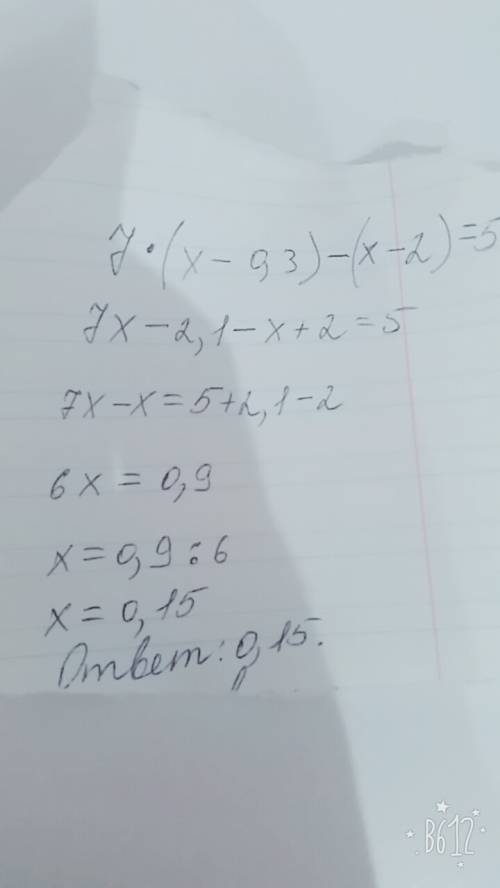 7·(x-0,3)-(x-2)=5
7x-2,1-x+2=5
7x-x=5+2,1-2
6x=0,9
x=0,9:6
x=0,15
Ответ: 0,15.
B612